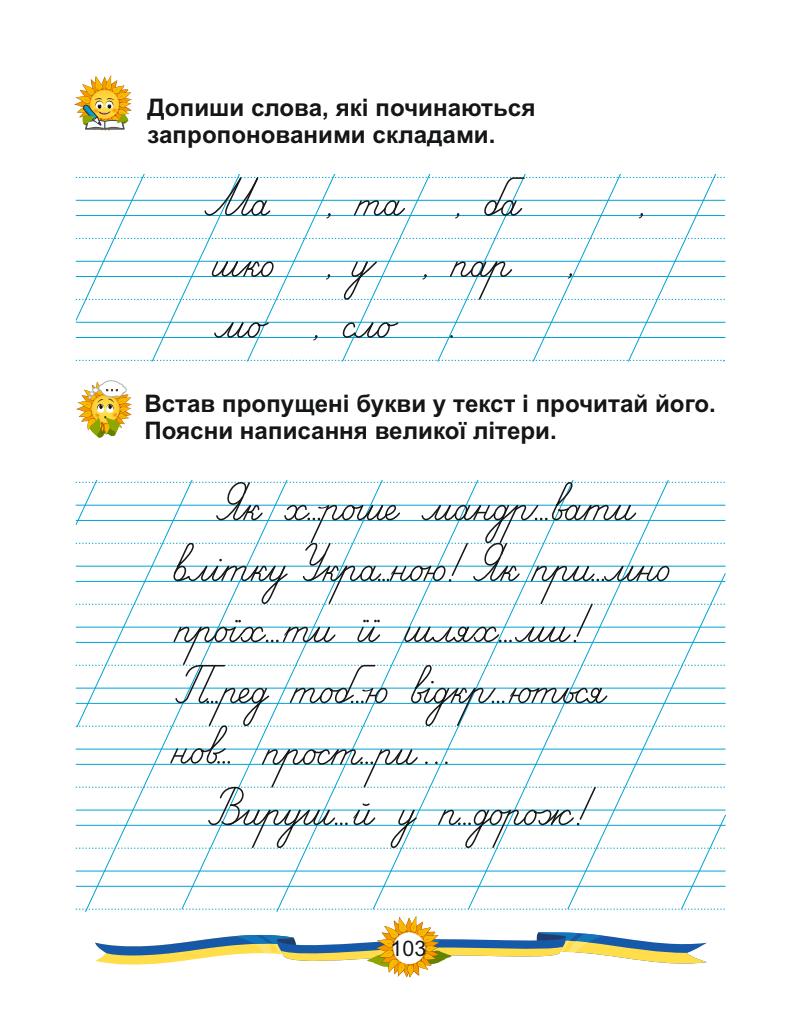 Допиши слова, які починаються
запропонованими складами.
Ма , та , ба ,
шко , у , пар ,
мо , сло .
...
Встав пропущені букви у текст і прочитай його.
Поясни написання великої літери.
Як х...роше мандр...вати
влітку Укра...ною! Як при...мно
проїх...ти її шлях...ми!
П...ред тоб...ю відкр...ються
нов... прост...ри ...
Вируш...й у п...дорож!
103